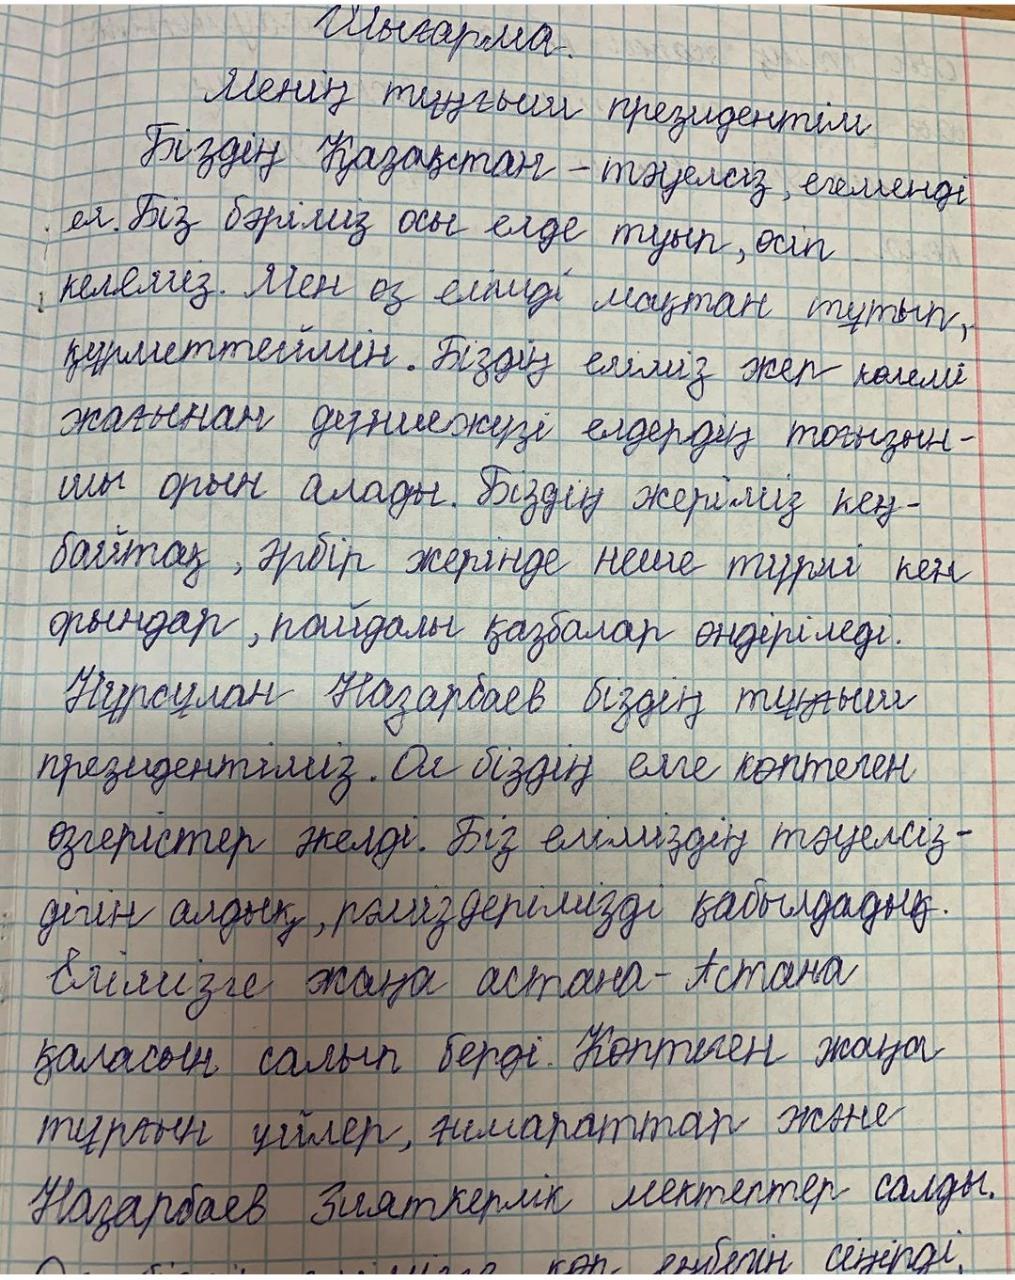 Шығарма.
Менің тұңғыш президентім
Біздің Қазақстан - тәуелсіз, егеменді
ел. Біз бәріміз осы елде туып, өсіп
келеміз. Мен өз елімді мақтан тұтып,
құрметтеймін. Біздің еліміз жер көлемі
жағынан дүниежүзі елдердің тоғызын-
шы орын алады. Біздің жеріміз кең-
байтақ, әрбір жерінде неше түрлі кен
орындар, пайдалы қазбалар өндіріледі.
Нұрсұлан Назарбаев біздің тұңғыш
президентіміз. Ол біздің елге көптеген
өзгерістер әкелді. Біз еліміздің тәуелсіз-
дігін алдық, рәміздерімізді қабылдадық.
Елімізге жаңа астана - Астана
қаласын салып берді. Көптеген жаңа
тұрғын үйлер, ғимараттар және
Назарбаев Зияткерлік мектептер салды.
көп еңбегін сіңірді.